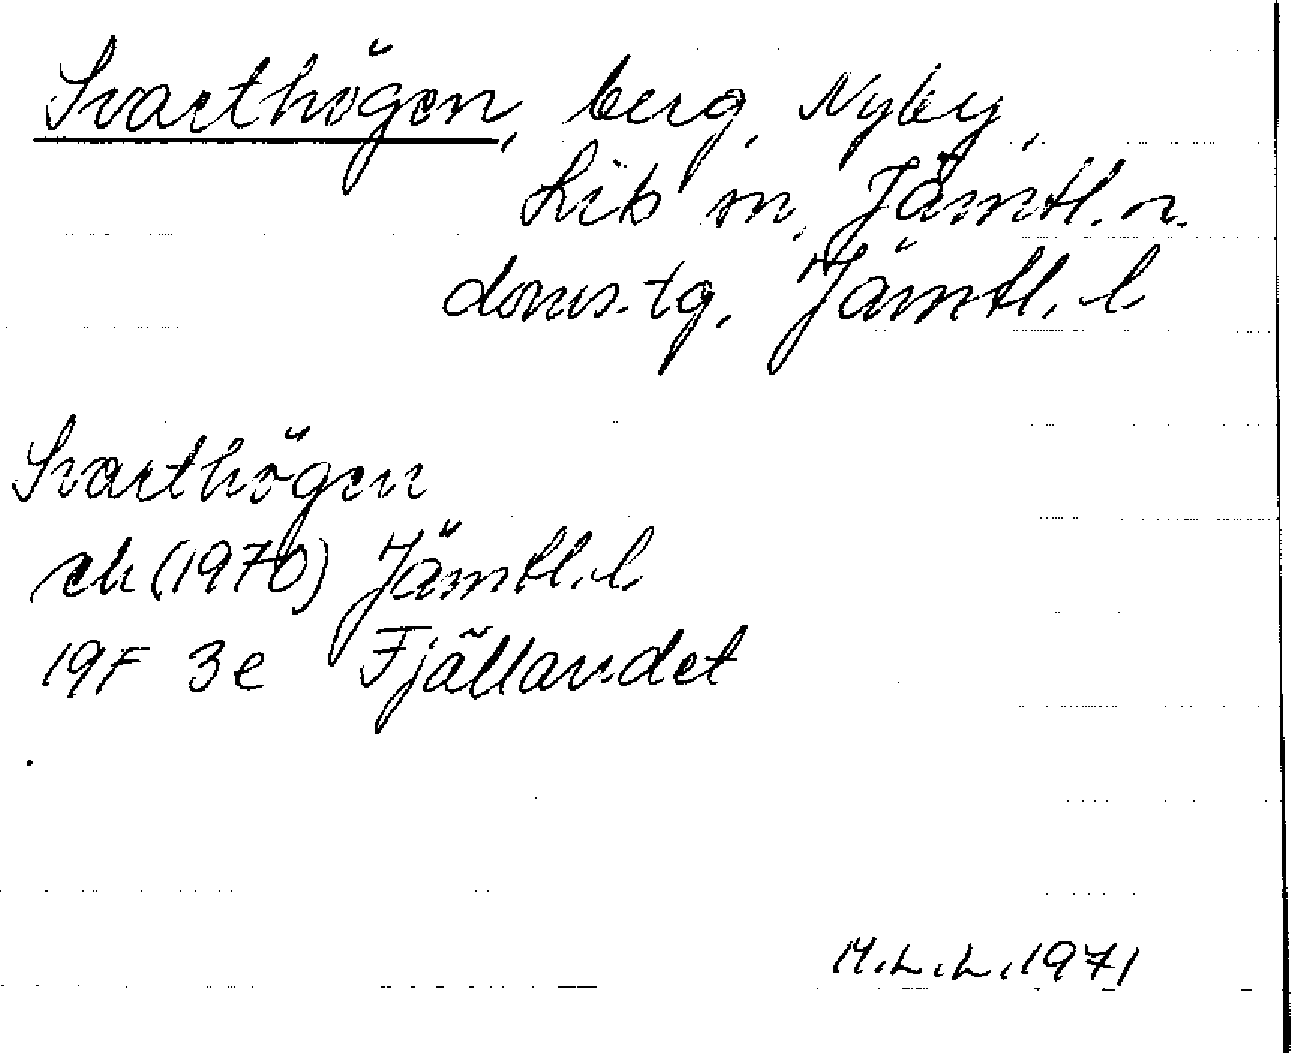 Svarthögen, berg, Nyby,
Lits sn, Jämtl. n.
doms.tg, Jämtl. l
Svarthögen
ek (1970) Jämtl. l.
19F 3e Fjällandet
M.L.L. 1971